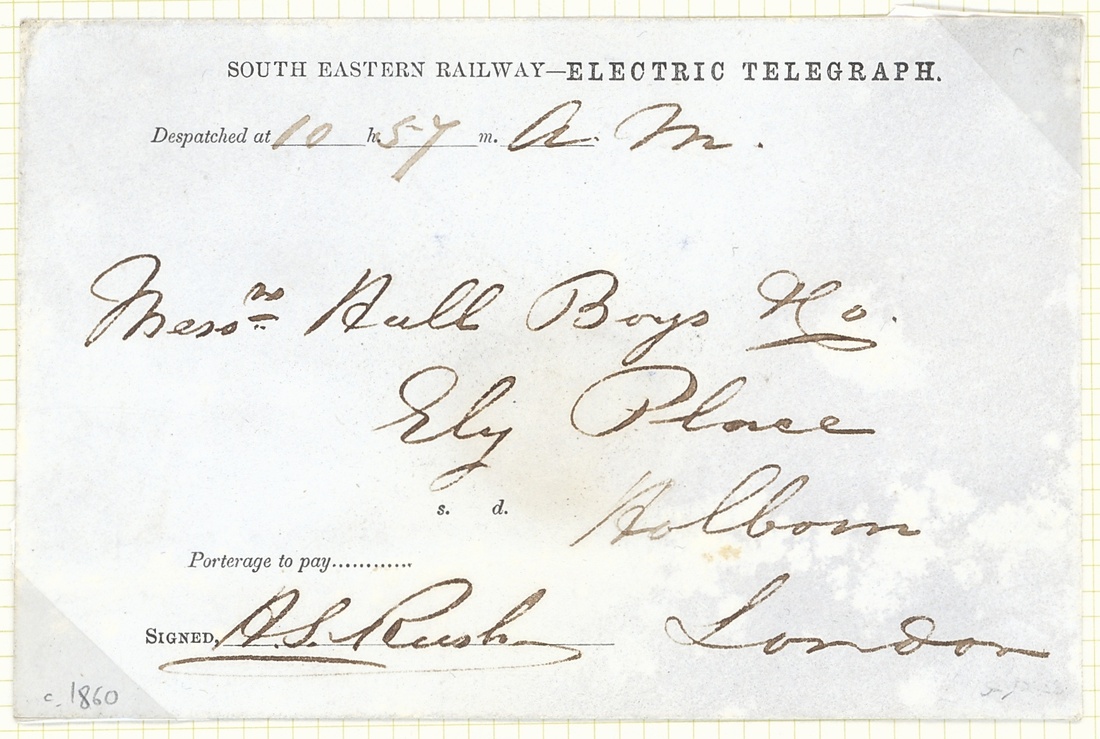 SOUTH EASTERN RAILWAY—ELECTRIC TELEGRAPH.
Despatched at 10 h. 57 m. A. M.
Messrs Hull Boys &Co.
Ely Place
s. d.
Holborn
Porterage to pay............
SIGNED, A.S. Rush
London
c. 1860